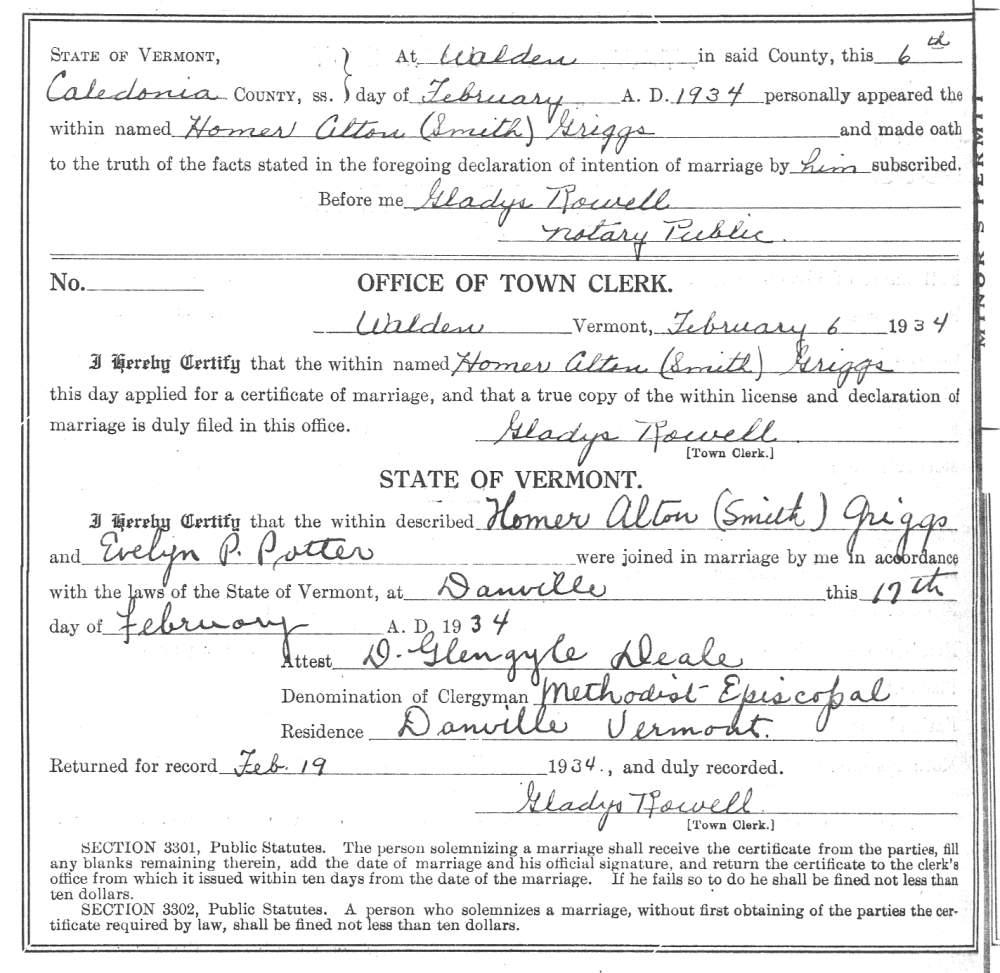 STATE OF VERMONT, } At Walden in said County, this 6th
Caledonia COUNTY, ss. day of February A. D. 1934 personally appeared the
within named Homer Alton (Smith) Griggs and made oath
to the truth of the facts stated in the foregoing declaration of intention of marriage by him subscribed.
Before me Gladys Rowell
Notary Public.
No. OFFICE OF TOWN CLERK.
Walden Vermont, February 6 1934
I Hereby Certify that the within named Homer Alton (Smith) Griggs
this day applied for a certificate of marriage, and that a true copy of the within license and declaration of
marriage is duly filed in this office. Gladys Rowell
[Town Clerk.]
STATE OF VERMONT.
I Hereby Certify that the within described Homer Alton (Smith) Griggs
and Evelyn P. Potter were joined in marriage by me in accordance
with the laws of the State of Vermont, at Danville this 17th
day of February A. D. 1934
Attest D. Glengyle Deale
Denomination of Clergyman Methodist Episcopal
Residence Danville Vermont.
Returned for record Feb. 19 1934., and duly recorded.
Gladys Rowell
[Town Clerk.]
SECTION 3301, Public Statutes. The person solemnizing a marriage shall receive the certificate from the parties, fill
any blanks remaining therein, add the date of marriage and his official signature, and return the certificate to the clerk's
office from which it issued within ten days from the date of the marriage. If he fails so to do he shall be fined not less than
ten dollars.
SECTION 3302, Public Statutes. A person who solemnizes a marriage, without first obtaining of the parties the cer-
tificate required by law, shall be fined not less than ten dollars.
MINOR'S PERMIT